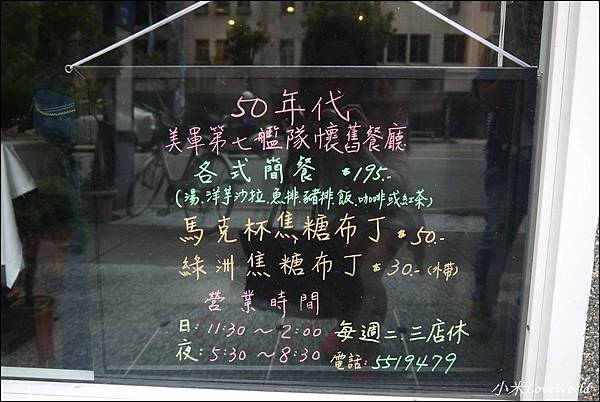 50年代
美軍第七艦隊懷舊餐廳
各式簡餐 $195.-
(湯.洋芋沙拉.魚排.豬排.飯.咖啡或紅茶)
馬克杯焦糖布丁 $50.-
綠洲焦糖布丁 $30.-(外帶)
營業時間
日:11:30～2:00 每週二.三店休
夜:5:30～8:30 電話:5519479
小米LoveWorld